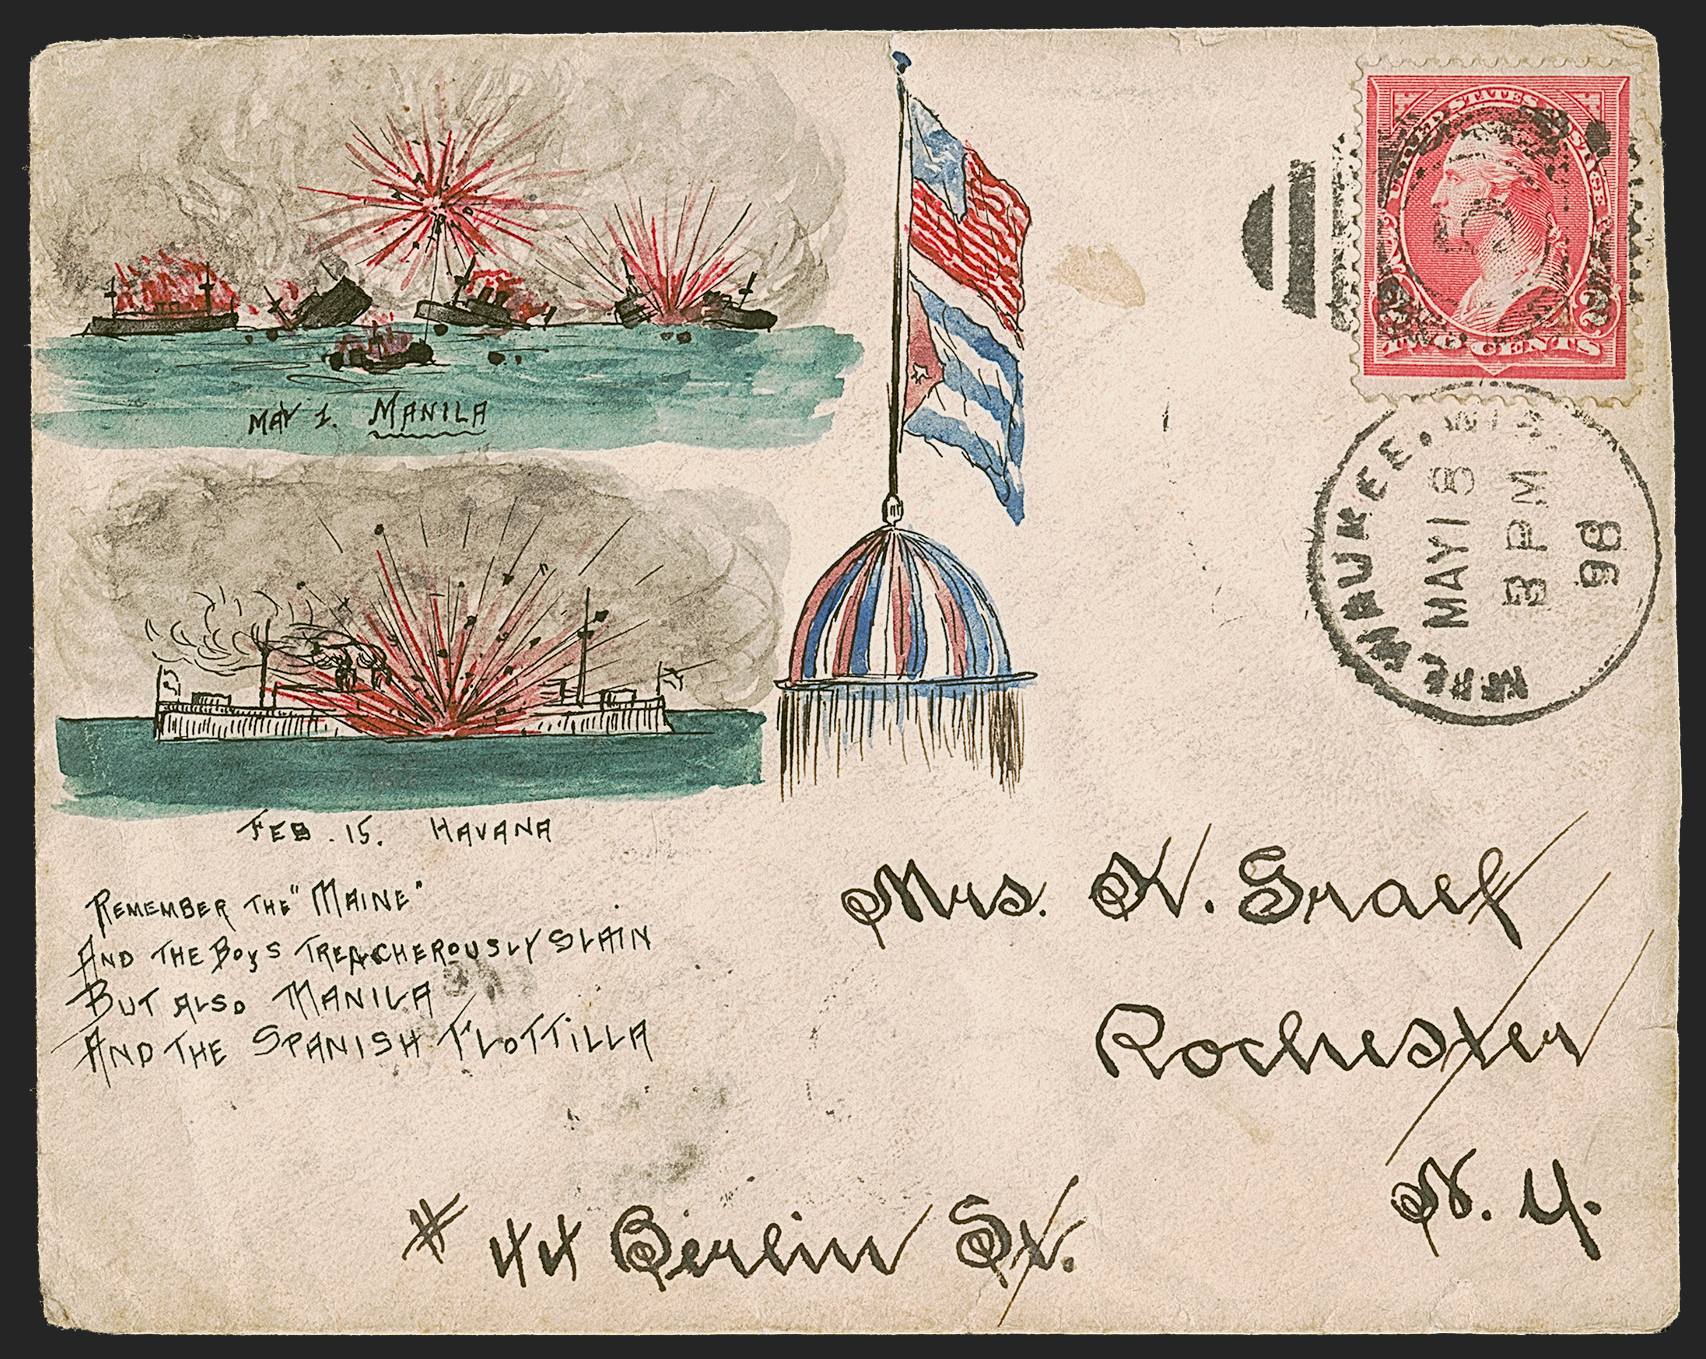 UNITED STATES POSTAGE
2 2
TWO CENTS
MILWAUKEE, WIS.
MAY 18
3 PM
98
MAY 1. MANILA
FEB. 15. HAVANA
REMEMBER THE "MAINE"
AND THE BOYS TREACHEROUSLY SLAIN
BUT ALSO MANILA
AND THE SPANISH FLOTTILLA
Mrs. K. Graef
Rochester
N. Y.
# 44 Berlin St.